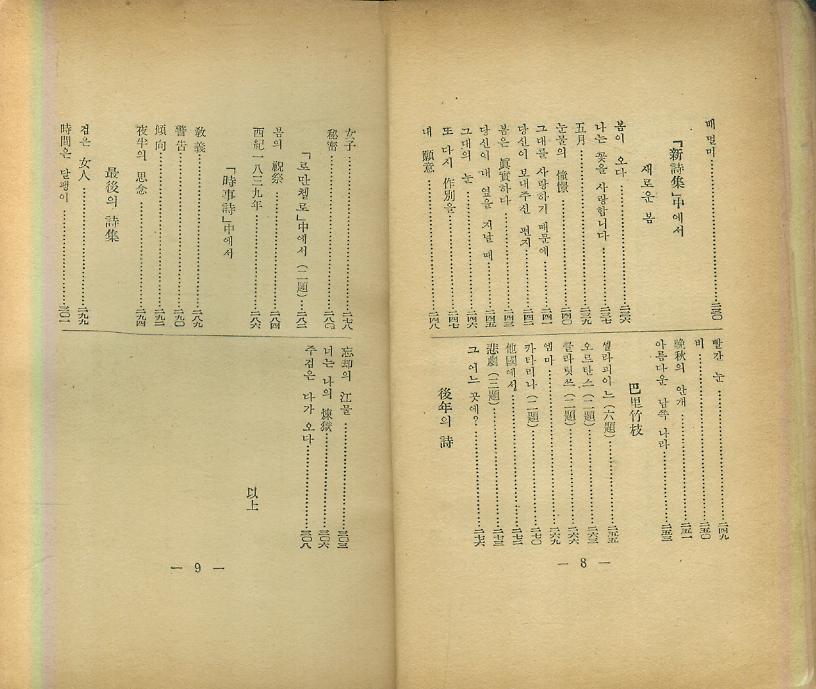 매멀미 二三〇
『新詩集』中에서
새로운 봄
봄이 오다 二三六
나는 꽃을 사랑합니다 二三七
五月 二三九
눈물의 憧憬 二四〇
그대를 사랑하기 때문에 二四一
당신이 보내주신 편지 二四二
봄은 眞實하다 二四三
당신이 내 옆을 지날 때 二四五
그대의 눈 二四六
또 다시 作別을 二四七
내 願意 二四八
빨간 눈 二四九
비 二五〇
晩秋의 안개 二五一
아름다운 남쪽 나라 二五三
巴里竹枝
쎌라피이느 (六題) 二五五
오르탄스 (二題) 二六三
클라릿쓰 (二題) 二六六
엠마 二六九
카타리나 (二題) 二七〇
他國에서 二七二
悲劇 (三題) 二七三
그 어느 곳에? 二七六
後年의 詩
— 8 —
女子 二七八
秘密 二八〇
「로만첼로」中에서 (二題) 二八二
봄의 祝祭 二八四
西紀一八三九年 二八六
「時事詩」中에서
敎義 二八九
警告 二九〇
傾向 二九二
夜半의 思念 二九四
最後의 詩集
검은 女人 二九九
時間은 달팽이 三〇一
忘却의 江물 三〇三
너는 나의 煉獄 三〇六
주검은 다가 오다 三〇八
以上
— 9 —